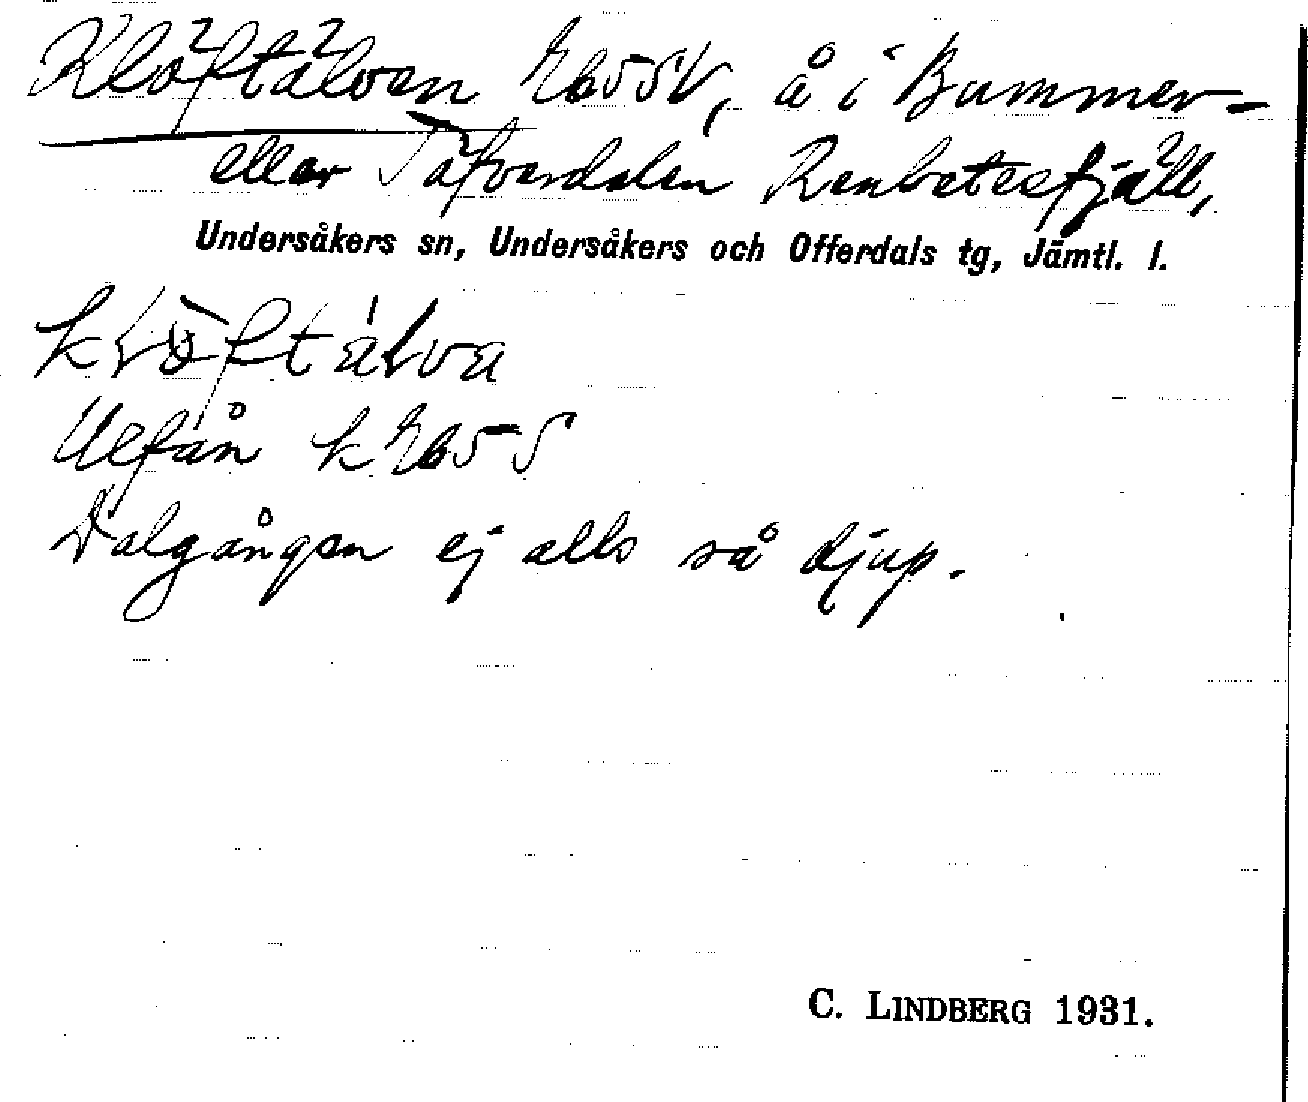 Klöftälven Eb55V, å i Bummer-
eller Täfverdalen Renbetesfjäll,
Undersåkers sn, Undersåkers och Offerdals tg, Jämtl. l.
klö̀ftálva
k Eb55
Dalgången ej alls så djup.
C. LINDBERG 1931.